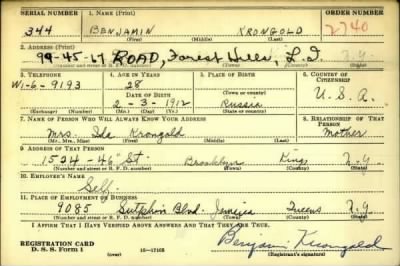 SERIAL NUMBER 1. NAME (Print) ORDER NUMBER
344 BENJAMIN KRONGOLD 2740
(First) (Middle) (Last)
2. ADDRESS (Print)
99-45-67 ROAD, Forest Hills, L.I. N.Y.
(Number and street or R. F. D. number) (Town) (County) (State)
3. TELEPHONE 4. AGE IN YEARS 5. PLACE OF BIRTH 6. COUNTRY OF CITIZENSHIP
28
Wi-6-9193 DATE OF BIRTH (Town or county) U.S.A.
2-3-1912 Russia
(Exchange) (Number) (Mo.) (Day) (Yr.) (State or country)
7. NAME OF PERSON WHO WILL ALWAYS KNOW YOUR ADDRESS 8. RELATIONSHIP OF THAT PERSON
Mrs. Ida Krongold Mother
(Mr., Mrs., Miss) (First) (Middle) (Last)
9. ADDRESS OF THAT PERSON
1524-46" St. Brooklyn Kings N.Y.
(Number and street or R. F. D. number) (Town) (County) (State)
10. EMPLOYER'S NAME
Self.
11. PLACE OF EMPLOYMENT OR BUSINESS
9085 Sutphin Blvd. Jamaica Queens N.Y.
(Number and street or R. F. D. number) (Town) (County) (State)
I AFFIRM THAT I HAVE VERIFIED ABOVE ANSWERS AND THAT THEY ARE TRUE.
REGISTRATION CARD
D. S. S. Form 1 (over) 16—17105 Benjamin Krongold
(Registrant's signature)